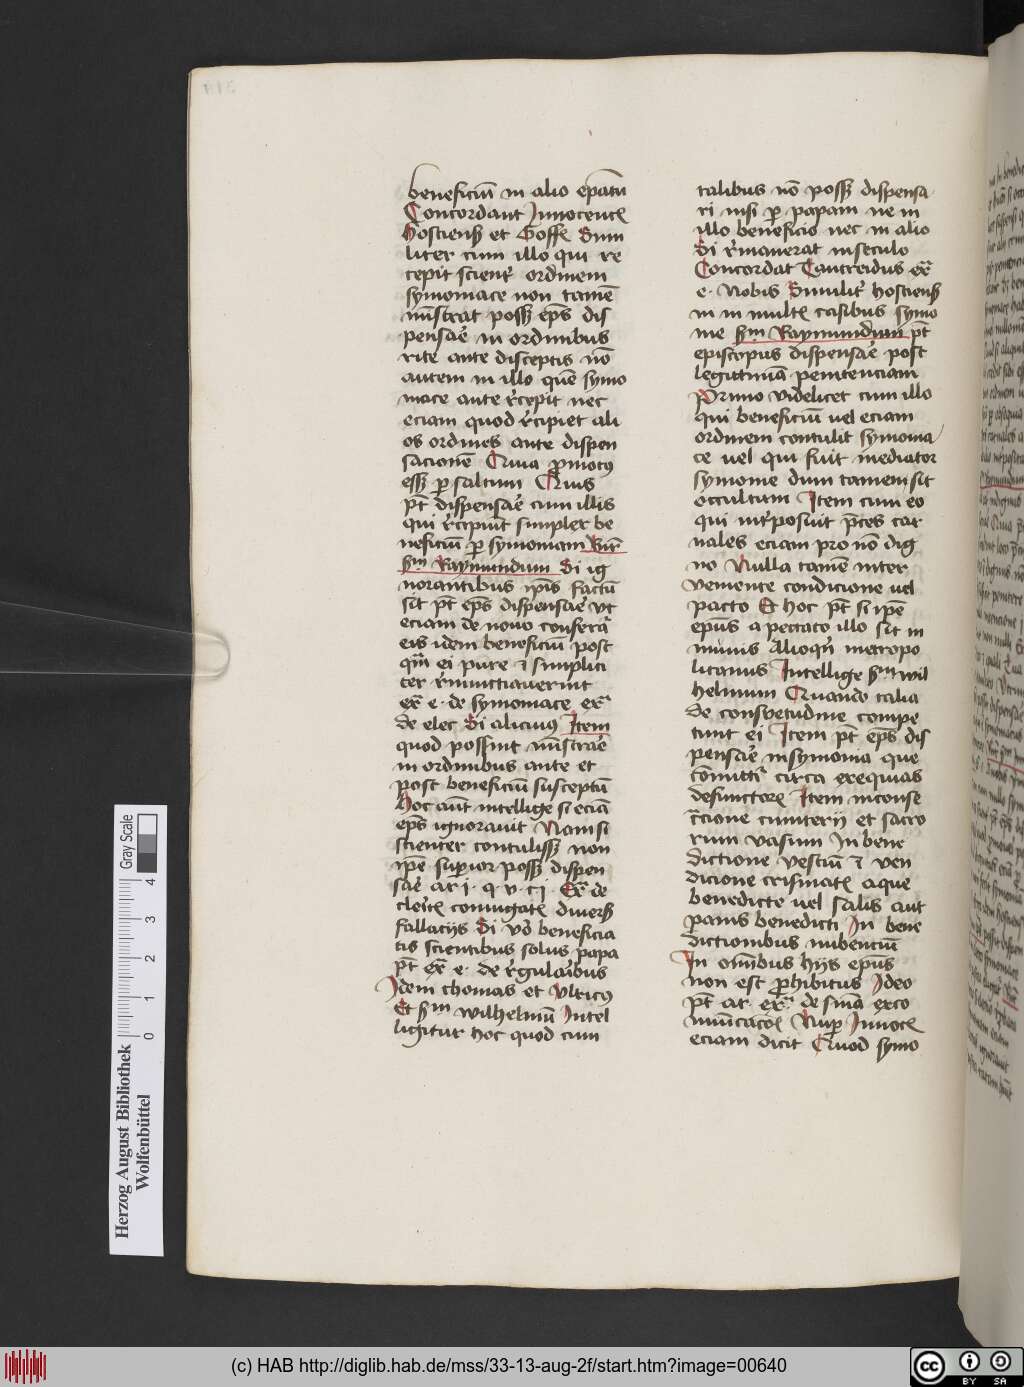 beneficiū in alio ep̄atu
Concordant Innocenciꝰ
Hostienß et Goff̄ Simi
liter cum illo qui re
cepit scient̓ ordinem
symoniace non tamē
mīstrat possꝫ ep̄s dis
pensaꝛ̄ in ordinibus
rite ante disceptis nō
autem in illo quē symo
niace ante r̓cepit nec
eciam quod r̓cipiet ali
os ordines ante dispen
sacionē Quia ꝓmotꝰ
essꝫ ꝑ saltum Quis
pt̄ dispensaꝛ̄ cum illis
qui r̓cipiūt simpler be
neficiū ꝑ symoniam Rn̄
ẜm Raymundum Si ig
norantibus ip̄is factū
sit pt̄ ep̄s dispensaꝛ̄ vt
eciam de nouo conferāt
eis idem beneficiū post
qm̄ ei pure ⁊ simplici
ter r̓nunctiauerint
ex̄ e· de symoniace ex̄
de elec Si alicuiꝰ Item
quod possint mīstraꝛ̄
in ordinibus ante et
post beneficiū susceptū
Hoc aūt intellige si eciā
ep̄s ignorauit Nam si
scienter contulissꝫ non
ip̄e supior possꝫ dispen
saꝛ̄ ar i· q v· c j· Ex̄ de
cleīc̄ coniugat̄ diuerß
fallacijs Si vō beneficia
tis scientibus solus papa
pt̄ ex̄ e· de r̓gularibus
Idem thomas et Vlricꝰ
Et ẜm wilhelmū Intel
ligitur hoc quod cum
talibus nō possꝫ dispensa
ri nisi ꝑ papam ne in
illo beneficio nec in alio
Si r̓manerat in seculo
Concordat Tancreidus ex̄
e· Nobis Similit̓ hostienß
in in multꝭ casibus symo
nie ẜm Raymundum pt̄
episcopus dispensaꝛ̄ post
legittimā penitenciam
Primo videlicet cum illo
qui beneficiū uel eciam
ordinem contulit symonia
ce uel qui fuit mediator
symonie dum tamen sit
occultum Item cum eo
qui int̓posuit p̄ces car
nales eciam pro nō dig
no Nulla tamē inter
veniente condicione uel
pacto Et hoc pt̄ si ip̄e
ep̄us a peccato illo sit in
munis Alioqn̄ metropo
litanus Intellige ẜm wil
helmum Quando talia
de consvetudine compe
tunt ei Item pt̄ ep̄s dis
pensaꝛ̄ in symonia que
com̄ittit̓ circa exequias
defunctorꝝ Item in conse
c̄cione cimiterij et sacro
rum vasium In bene
dictione vestiū ⁊ ven
dicione crismatꝭ aque
benedicte uel salis aut
panis benedicti In bene
dictionibus nubenciū
In om̄ibus hijs ep̄us
non est ꝓhibitus Ideo
pt̄ ar· ex̄· de sn̄ia exco
mūicacōꝭ Nup Innocꝭ
eciam dicit Quod symo
Herzog August Bibliothek
Wolfenbüttel
0 1 2 3 4
Gray Scale
(c) HAB http://diglib.hab.de/mss/33-13-aug-2f/start.htm?image=00640
cc BY SA